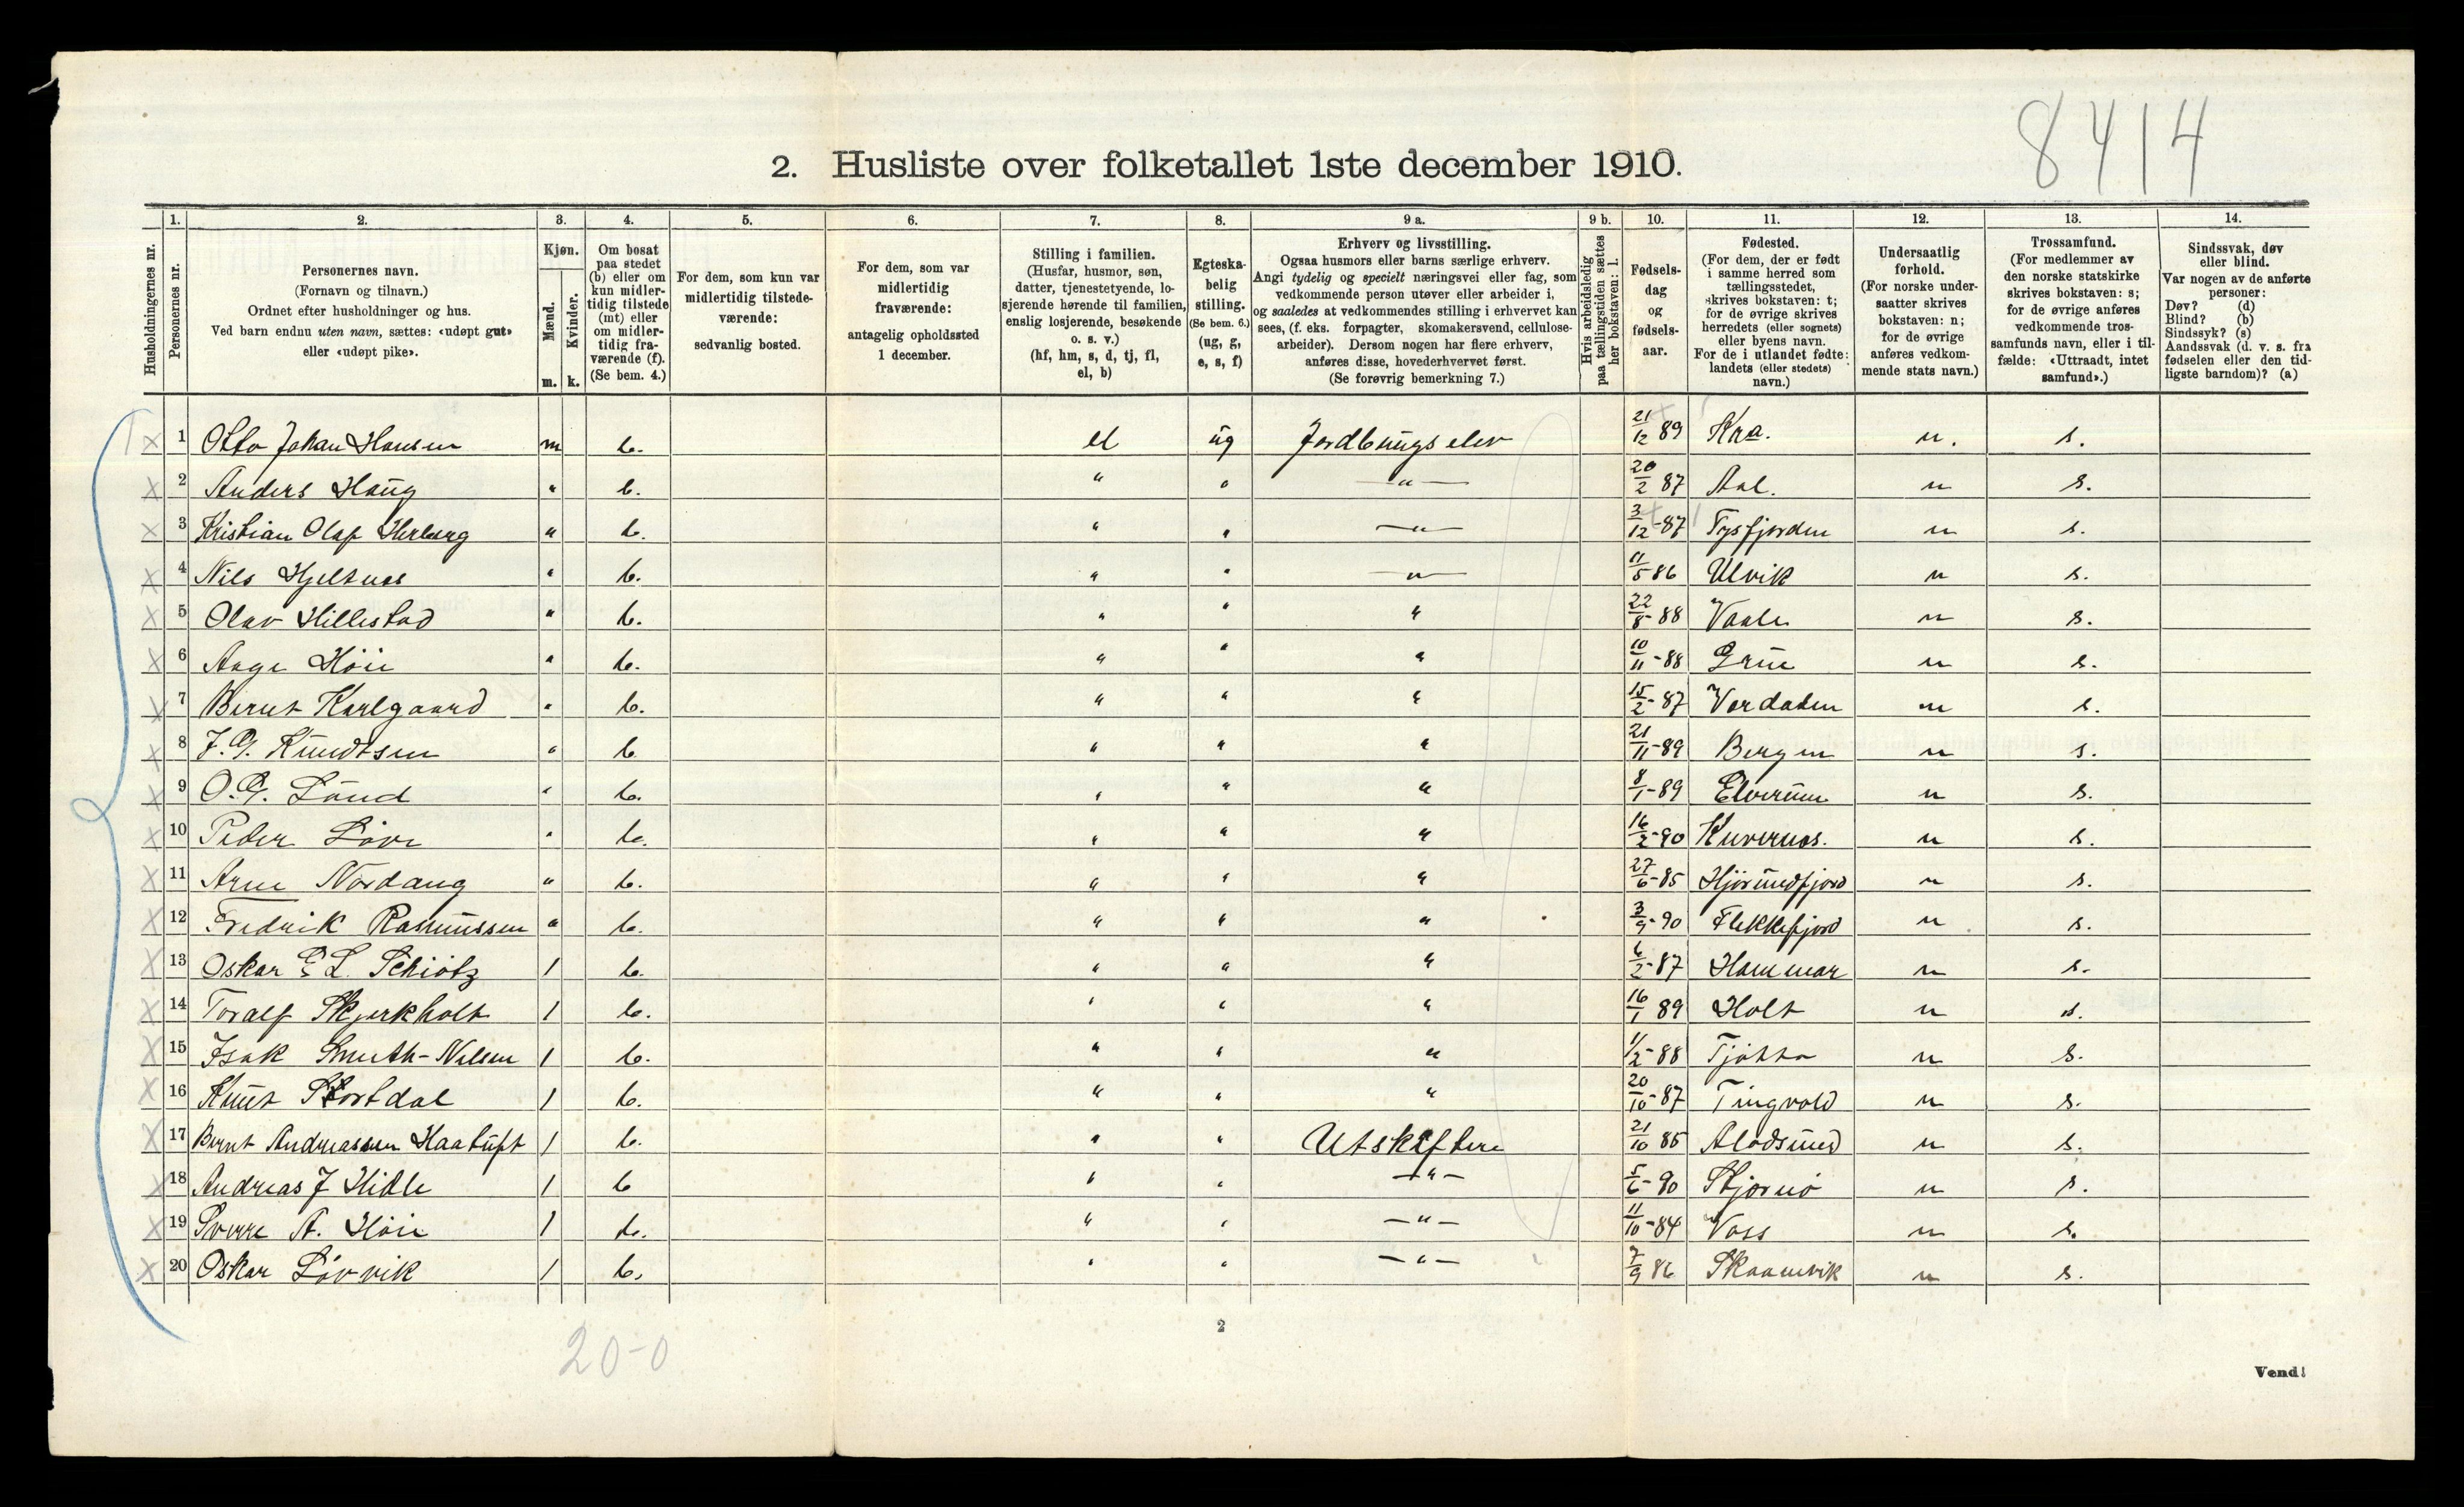 8414
2. Husliste over folketallet 1ste december 1910.
Husholdningernes nr.
1. Personernes nr.
2. Personernes navn. (Fornavn og tilnavn.) Ordnet efter husholdninger og hus. Ved barn endnu uten navn, sættes: «udøpt gut» eller «udøpt pike».
3. Kjøn. Mænd. m. Kvinder. k.
4. Om bosat paa stedet (b) eller om kun midlertidig tilstede (mt) eller om midlertidig fraværende (f). (Se bem. 4.)
5. For dem, som kun var midlertidig tilstedeværende: sedvanlig bosted.
6. For dem, som var midlertidig fraværende: antagelig opholdssted 1 december.
7. Stilling i familien. (Husfar, husmor, søn, datter, tjenestetyende, losjerende hørende til familien, enslig losjerende, besøkende o. s. v.) (hf, hm, s, d, tj, fl, el, b)
8. Egteskabelig stilling. (Se bem. 6.) (ug, g, e, s, f)
9 a. Erhverv og livsstilling. Ogsaa husmors eller barns særlige erhverv. Angi tydelig og specielt næringsvei eller fag, som vedkommende person utøver eller arbeider i, og saaledes at vedkommendes stilling i erhvervet kan sees, (f. eks. forpagter, skomakersvend, cellulosearbeider). Dersom nogen har flere erhverv, anføres disse, hovederhvervet først. (Se forøvrig bemerkning 7.)
9 b. Hvis arbeidsledig paa tællingstiden sættes her bokstaven: l.
10. Fødselsdag og fødselsaar.
11. Fødested. (For dem, der er født i samme herred som tællingsstedet, skrives bokstaven: t; for de øvrige skrives herredets (eller sognets) eller byens navn. For de i utlandet fødte: landets (eller stedets) navn.)
12. Undersaatlig forhold. (For norske undersaatter skrives bokstaven: n; for de øvrige anføres vedkommende stats navn.)
13. Trossamfund. (For medlemmer av den norske statskirke skrives bokstaven: s; for de øvrige anføres vedkommende trossamfunds navn, eller i tilfælde: «Uttraadt, intet samfund».)
14. Sindssvak, døv eller blind. Var nogen av de anførte personer: Døv? (d) Blind? (b) Sindssyk? (s) Aandssvak (d. v. s. fra fødselen eller den tidligste barndom)? (a)
x 1 Otto Johan Hansen m b. el ug Jordbrugselev 21/12 89 Kra. n. s.
x 2 Anders Haug " b. " " —"— 20/2 87 Aal. n s.
x 3 Kristian Olaf Herberg " b. " " —"— 3/12-87 Tysfjorden n s.
x 4 Nils Hjeltnes " b. " " —"— 11/5 86 Ulvik n s.
x 5 Olav Hillestad " b. " " " 22/8-88 Vaale n s.
x 6 Aage Höie " b. " " " 10/11-88 Grue n s.
x 7 Bernt Karlgaard " b. " " " 15/2-87 Verdalen n s.
x 8 J.G. Knudtsen " b " " " 21/11-89 Bergen n s.
x 9 O.G. Lund " b. " " " 8/1-89 Elverum n s.
x 10 Peder Löve " b. " " " 16/2-90 Kvernes. n s.
x 11 Arne Nordang " b. " " " 27/6-85 Hjörundfjord n s.
x 12 Fredrik Rasmussen " b. " " " 3/9-90 Flekkefjord n s.
x 13 Oskar E L. Schiötz 1 b. " " " 6/2-87 Hammar n s.
x 14 Toralf Skjerkholt 1 b. " " " 16/1 89 Holt n s.
x 15 Isak Smith-Nilsen 1 b. " " " 11/2-88 Tjötta n s.
x 16 Knut Stortdal 1 b. " " " 20/10-87 Tingvold n s.
x 17 Bernt Andreassen Haatuft 1 b. " " Utskiftere 21/10 85 n s.
x 18 Andreas J Hidle 1 b " " —"— 5/6-90 n s.
x 19 Sverre A. Höie 1 b. " " —"— 11/10-84 Voss n s.
x 20 Oskar Lövvik 1 b. " " —"— 7/9 86 Skaanevik n s.
20-0
2
Vend!